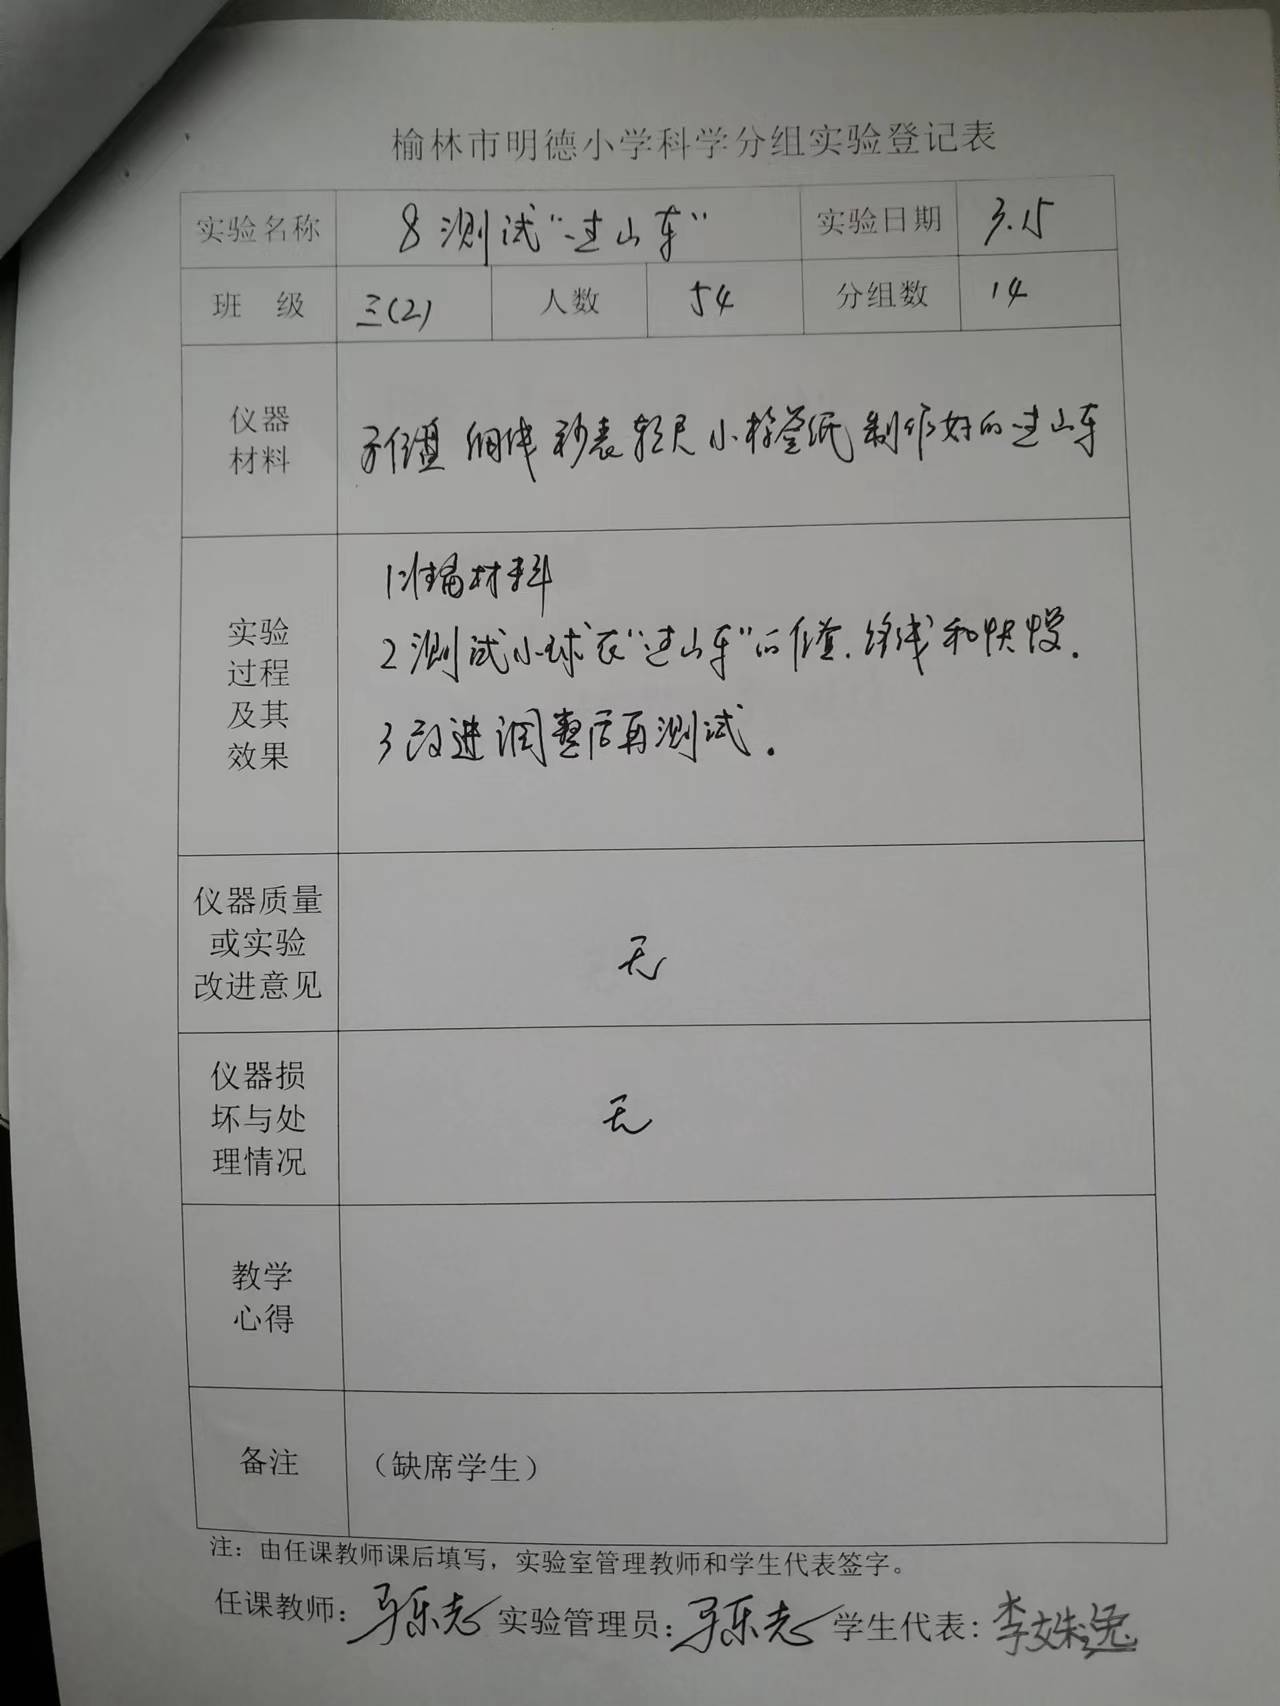 榆林市明德小学科学分组实验登记表
实验名称 8 测试“过山车” 实验日期 3.15
班 级 三(2) 人数 54 分组数 14
仪器 材料 细线 秒表 软尺 小标签纸 制作好的过山车
实验 过程 及其 效果
1准备材料
2 测试小球在“过山车”的位置、路线和快慢.
3 改进调整后再测试.
仪器质量 或实验 改进意见 无
仪器损 坏与处 理情况 无
教学 心得
备注 （缺席学生）
注：由任课教师课后填写，实验室管理教师和学生代表签字。
任课教师: 马乐志 实验管理员: 马乐志 学生代表: 李姝